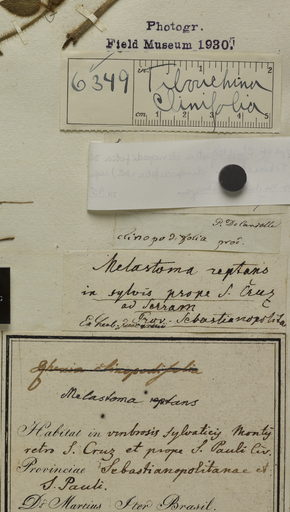 Photogr.
Field Museum 1930.
6349
in.
1
2
Tibouchina
clinifolia
cm.
1
2
3
4
5
P. DeCandolle
clinopodifolia prod.
Melastoma reptans
in sylvis prope S. Cruz
ad Serram
Prov. Sebastianopolita
clinopodifolia
Melastoma reptans
Habitat in umbrosis sylvaticis Montg
retro S. Cruz et prope S. Pauli Civ.
Provinciae Sebastianopolitanae et
S. Pauli.
Dr Martius Iter Brasil.